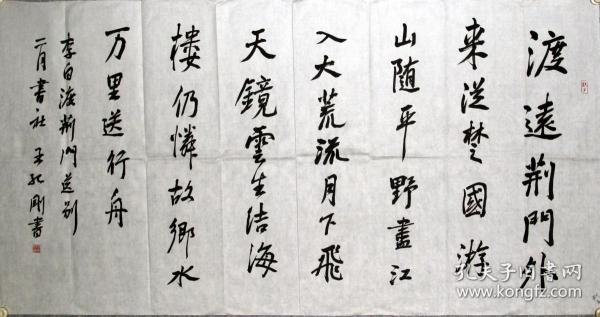 渡遠荆門外
来從楚國游
山随平野盡江
入大荒流月下飛
天鏡雲生结海
樓仍憐故鄉水
万里送行舟
李白渡荆門送别
二月書社 王 剛書
孔夫子旧書网
www.kongfz.com